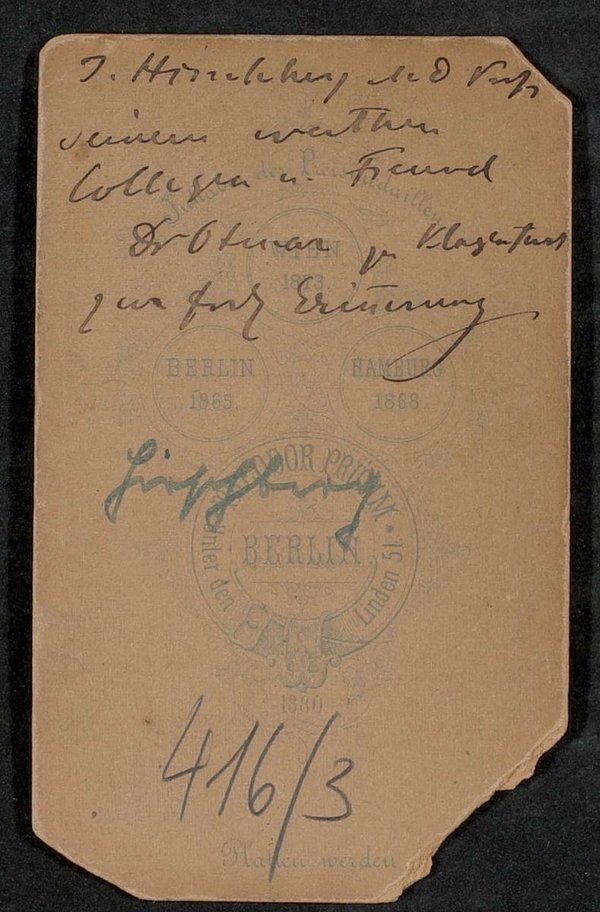 J. Hirschberg M.D Prof.
seinem werthen
Collegen u. Freund
Dr Otmar zu Klagenfurt
zur frdl Erinnerung
Inhaber der Preismedaillen
WIEN
1873
BERLIN
1865.
HAMBURG
1868.
Hirschberg
THEODOR PRÜMM
BERLIN
Unter den Linden 51.
1880
416/3
Platten werden